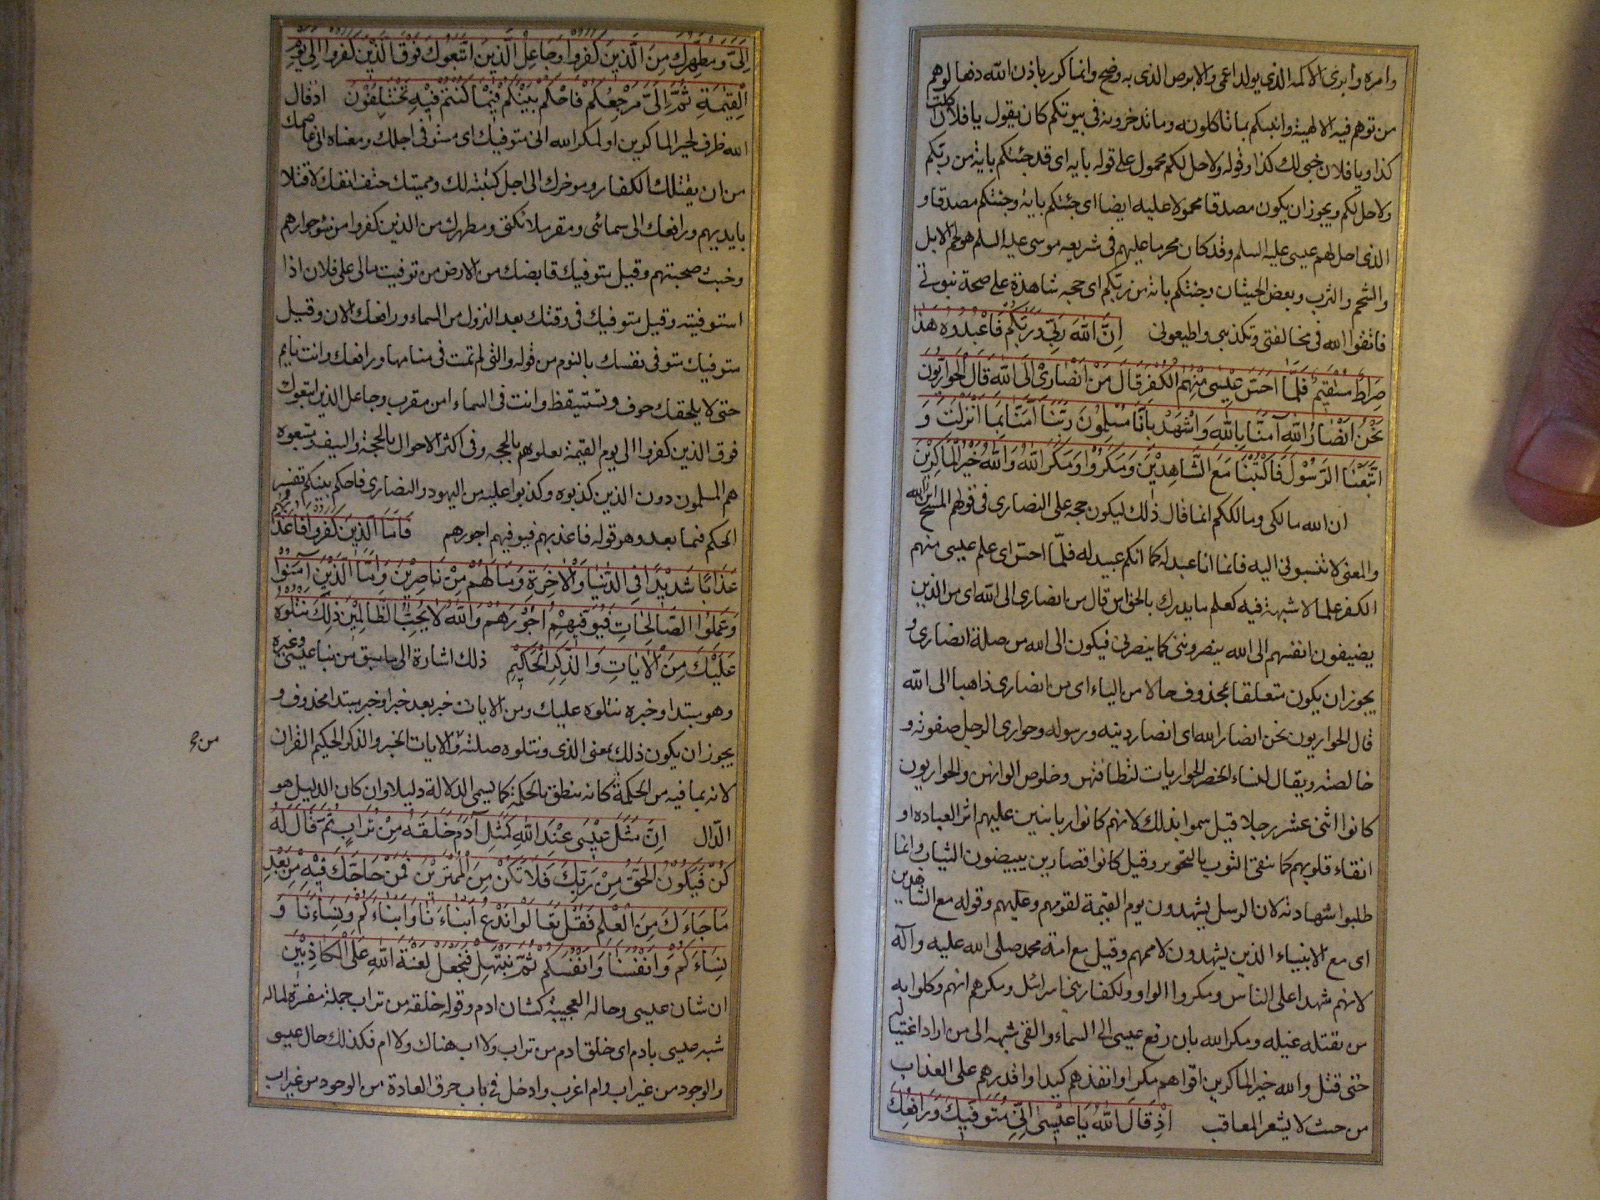 وامره وابرئ الاكمه الذى يولد اعمى والابرص الذى به وضح وانما كرر باذن الله دفعا لوهم
من توهم فيه الالهية وانبئكم بما تاكلونه وما تدخرونه فى بيوتكم كان يقول يا فلان اكلت
كذا ويا فلان خبى لك كذا وقوله ولاحل لكم محمول على قوله بايه اى قد جئتكم باية من ربكم
ولاحل لكم ويجوز ان يكون مصدقا محمولا عليه ايضا اى جئتكم باية وجئتكم مصدقا و
الذى احل لهم عيسى عليه السلم وقد كان محرما عليهم فى شريعة موسى عليه السلم هو لحم الابل
والشحم والثرب وبعض الحيتان وجئتكم باية من ربكم اى حجة شاهدة على صحة نبوتى
فاتقوا الله فى مخالفتى وتكذيبى واطيعونى اِنَّ اللهَ رَبِّى وَرَبُّكُمْ فَاعْبُدُوهُ هٰذَا
صِرَاطٌ مُسْتَقِيمٌ فَلَمَّا اَحَسَّ عِيْسٰى مِنْهُمُ الْكُفْرَ قَالَ مَنْ اَنْصَارِىْ اِلَى اللهِ قَالَ الْحَوَارِيُّونَ
نَحْنُ اَنْصَارُ اللهِ آمَنَّا بِاللهِ وَاشْهَدْ بِاَنَّا مُسْلِمُونَ رَبَّنَا آمَنَّا بِمَا اَنْزَلْتَ وَ
اتَّبَعْنَا الرَّسُوْلَ فَاكْتُبْنَا مَعَ الشَّاهِدِيْنَ وَمَكَرُوْا وَمَكَرَ اللهُ وَاللهُ خَيْرُ الْمَاكِرِيْنَ
ان الله مالكى ومالككم انما قال ذلك ليكون حجة على النصارى فى قولهم المسيح ابن الله
والمعنى لا تنسبونى اليه فانما انا عبد له كما انكم عبيد له فلمّا احس اى علم عيسى منهم
الكفر علما لا شبهة فيه كعلم ما يدرك بالحواس قال من انصارى الى الله اى من الذين
يضيفون انفسهم الى الله ينصروننى كما ينصرنى فيكون الى الله من صلة انصارى و
يجوز ان يكون متعلقا بمحذوف حالا من الياء اى من انصارى ذاهبا الى الله
قال الحواريون نحن انصار الله اى انصار دينه ورسوله وحوارى الرجل صفوته و
خالصته ويقال لنساء الحضر الحواريات لنظافتهن وخلوص الوانهن والحواريون
كانوا اثنى عشر رجلا قيل سموا بذلك لانهم كانوا ربانيين عليهم اثر العباده او
انقاء قلوبهم كما ينقى الثوب بالتحوير وقيل كانوا قصارين يبيضون الثياب وانما
طلبوا شهادته لان الرسل يشهدون يوم القيمة لقومهم وعليهم وقوله مع الشاهدين
اى مع الانبياء الذين يشهدون لاممهم وقيل مع امة محمد صلى الله عليه وآله
لانهم شهدا على الناس ومكروا الواو لكفار بنى اسرائيل ومكرهم انهم وكلوا به
من يقتله غيلة ومكر الله بان رفع عيسى الى السماء والقى شبهه الى من اراد اغتياله
حتى قتل والله خير الماكرين اقواهم مكرا وانفذهم كيدا واقدرهم على العذاب
من حيث لا يشعر المعاقب اِذْ قَالَ اللهُ يَا عِيْسٰى اِنِّى مُتَوَفِّيْكَ وَرَافِعُكَ
اِلَىَّ وَمُطَهِّرُكَ مِنَ الَّذِينَ كَفَرُوْا وَجَاعِلُ الَّذِينَ اتَّبَعُوْكَ فَوْقَ الَّذِيْنَ كَفَرُوا اِلَى يَوْمِ
الْقِيٰمَةِ ثُمَّ اِلَىَّ مَرْجِعُكُمْ فَاَحْكُمُ بَيْنَكُمْ فِيْمَا كُنْتُمْ فِيْهِ تَخْتَلِفُوْنَ اذ قال
الله ظرف لخير الماكرين او لمكر الله انى متوفيك اى مستوفى اجلك ومعناه انى عاصمك
من ان يقتلك الكفار وموخرك الى اجل كتبته لك ومميتك حتف انفك لا قتلا
بايديهم ورافعك الى سمائى ومقر ملائكتى ومطهرك من الذين كفروا من سوء جوارهم
وخبث صحبتهم وقيل متوفيك قابضك من الارض من توفيت مالى على فلان اذا
استوفيته وقيل متوفيك فى وقتك بعد النزول من السماء ورافعك الان وقيل
متوفيك متوفى نفسك بالنوم من قوله والتى لم تمت فى منامها ورافعك وانت نايم
حتى لا يلحقك خوف وتستيقظ وانت فى السماء امن مقرب وجاعل الذين اتبعوك
فوق الذين كفروا الى يوم القيمة يعلوهم بالحجة وفى اكثر الاحوال بالحجة والسيف ومتبعوه
هم المسلمون دون الذين كذبوه وكذبوا عليه من اليهود والنصارى فاحكم بينكم تفسير
الحكم فيما بعد وهو قوله فاعذبهم فيوفيهم اجورهم فَاَمَّا الَّذِيْنَ كَفَرُوْا فَاُعَذِّبُهُمْ
عَذَابًا شَدِيْدًا فِى الدُّنْيَا وَالْاٰخِرَةِ وَمَا لَهُمْ مِنْ نَاصِرِيْنَ وَاَمَّا الَّذِيْنَ آمَنُوْا
وَعَمِلُوا الصَّالِحَاتِ فَيُوَفِّيْهِمْ اُجُوْرَهُمْ وَاللهُ لَا يُحِبُّ الظَّالِمِيْنَ ذٰلِكَ نَتْلُوْهُ
عَلَيْكَ مِنَ الْاٰيَاتِ وَالذِّكْرِ الْحَكِيْمِ ذلك اشارة الى ما سبق من نبا عيسى وغيره
وهو مبتدا وخبره نتلوه عليك ومن الايات خبر بعد خبر او خبر مبتدا محذوف و
يجوز ان يكون ذلك بمعنى الذى ونتلوه صلته والايات الخبر والذكر الحكيم القران
لانه بما فيه من الحكمة كانه ينطق بالحكمة كما يسمى الدلالة دليلا وان كان الدليل هو
الدّال اِنَّ مَثَلَ عِيْسٰى عِنْدَ اللهِ كَمَثَلِ آدَمَ خَلَقَهُ مِنْ تُرَابٍ ثُمَّ قَالَ لَهُ
كُنْ فَيَكُوْنُ اَلْحَقُّ مِنْ رَبِّكَ فَلَا تَكُنْ مِنَ الْمُمْتَرِيْنَ فَمَنْ حَاجَّكَ فِيْهِ مِنْ بَعْدِ
مَا جَاءَكَ مِنَ الْعِلْمِ فَقُلْ تَعَالَوْا نَدْعُ اَبْنَاءَنَا وَاَبْنَاءَكُمْ وَنِسَاءَنَا وَ
نِسَاءَكُمْ وَاَنْفُسَنَا وَاَنْفُسَكُمْ ثُمَّ نَبْتَهِلْ فَنَجْعَلْ لَعْنَةَ اللهِ عَلَى الْكَاذِبِيْنَ
ان شان عيسى وحاله العجيبة كشان ادم وقوله خلقه من تراب جملة مفسرة لما له
شبه عيسى بادم اى خلق ادم من تراب ولا اب هناك ولا ام فكذلك حال عيسى
والوجود من غير اب وام اغرب وادخل فى باب خرق العادة من الوجود من غير اب